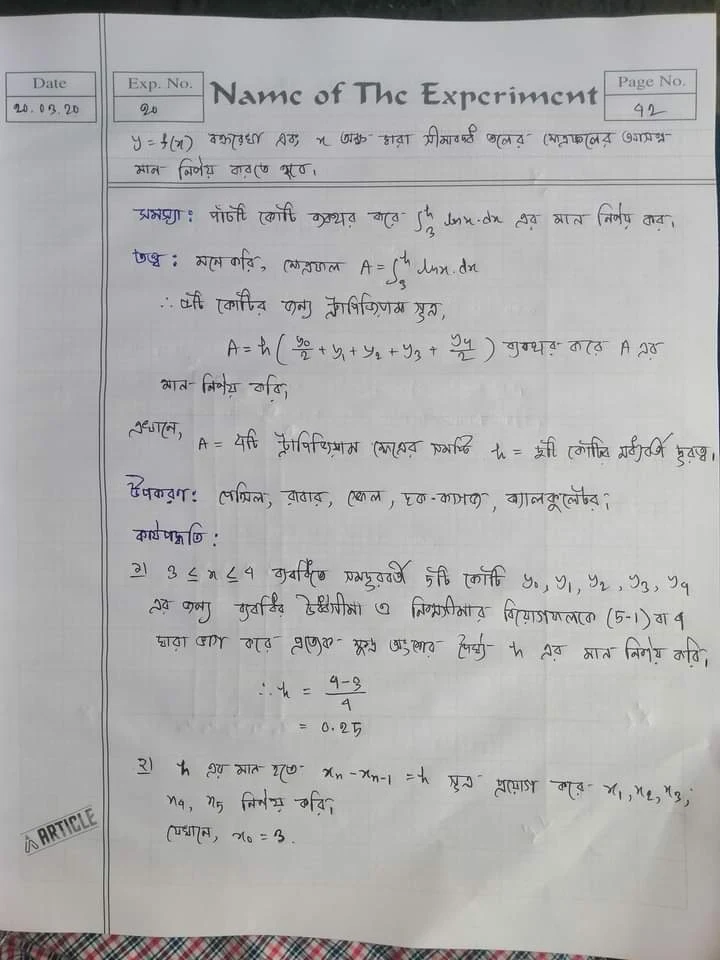 Date
20.03.20
Exp. No.
20
Name of The Experiment
Page No.
42
y = f(x) বক্ররেখা এবং x অক্ষ দ্বারা সীমাবদ্ধ তলের ক্ষেত্রফলের আসন্ন
মান নির্ণয় করতে হবে।
সমস্যা: পাঁচটি কোটি ব্যবহার করে ∫₃⁴ lnx.dx এর মান নির্ণয় কর।
তত্ত্ব: মনে করি, ক্ষেত্রফল A = ∫₃⁴ lnx.dx
∴ ৫টি কোটির জন্য ট্রাপিজিয়াম সূত্র,
A = h ( y₀/2 + y₁ + y₂ + y₃ + y₄/2 ) ব্যবহার করে A এর
মান নির্ণয় করি।
এখানে,
A = ৪টি ট্রাপিজিয়াম ক্ষেত্রের সমষ্টি h = দুটি কোটির মধ্যবর্তী দূরত্ব।
উপকরণ: পেন্সিল, রাবার, স্কেল, ছক-কাগজ, ক্যালকুলেটর।
কার্যপদ্ধতি:
১) 3 ≤ x ≤ 4 ব্যবধিতে সমদূরবর্তী ৫টি কোটি y₀, y₁, y₂, y₃, y₄
এর জন্য ব্যবধির উর্ধ্বসীমা ও নিম্নসীমার বিয়োগফলকে (5-1) বা 4
দ্বারা ভাগ করে প্রত্যেক ক্ষুদ্র অংশের দৈর্ঘ্য h এর মান নির্ণয় করি।
∴ h = (4-3)/4
= 0.25
২) h এর মান হতে xₙ - xₙ₋₁ = h সূত্র প্রয়োগ করে x₁, x₂, x₃,
x₄, x₅ নির্ণয় করি।
যেখানে, x₀ = 3.
ARTICLE